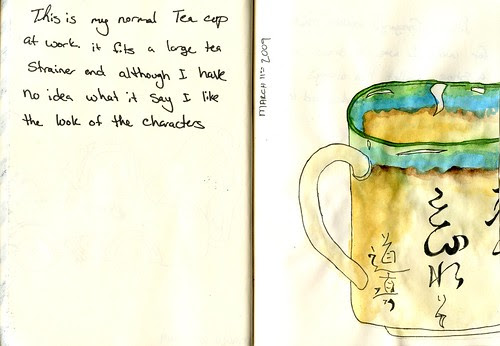 This is my normal Tea cup
at work. it fits a large tea
Strainer and although I have
no idea what it say I like
the look of the characters
MARCH 11th 2009
道